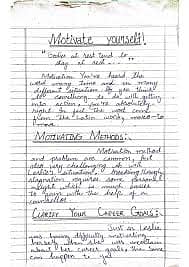 Motivate yourself!
"Bodies at rest tend to
stay at rest ..."
Motivation. You've heard the
word many time and in many
different situation. So you think
it something to do will getting
into action, you're absolutely
right. In fact the word come
from the Latin word, move to
move
MOTIVATING METHODS:.
Motivation method
and problem are common, but
also very challenging. As with
Leslie's situation, breaking through
stagnation requires some personal
insight which is much easier
to gain with the help of a
counsellor.
CLARIFY YOUR CAREER GOALS:.
Just as Leslie
was having difficulty motivating
herself when she was uncertain
about her career goals, the same
can happen to you